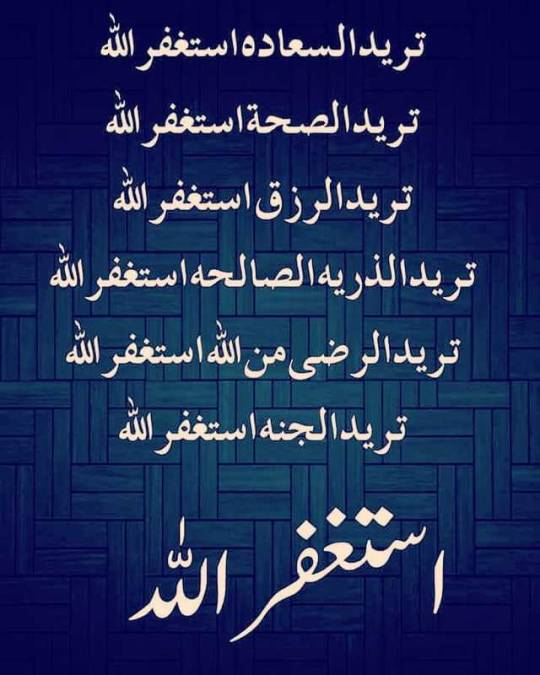 تريد السعاده استغفر الله
تريد الصحة استغفر الله
تريد الرزق استغفر الله
تريد الذريه الصالحه استغفر الله
تريد الرضى من الله استغفر الله
تريد الجنه استغفر الله
استغفر الله